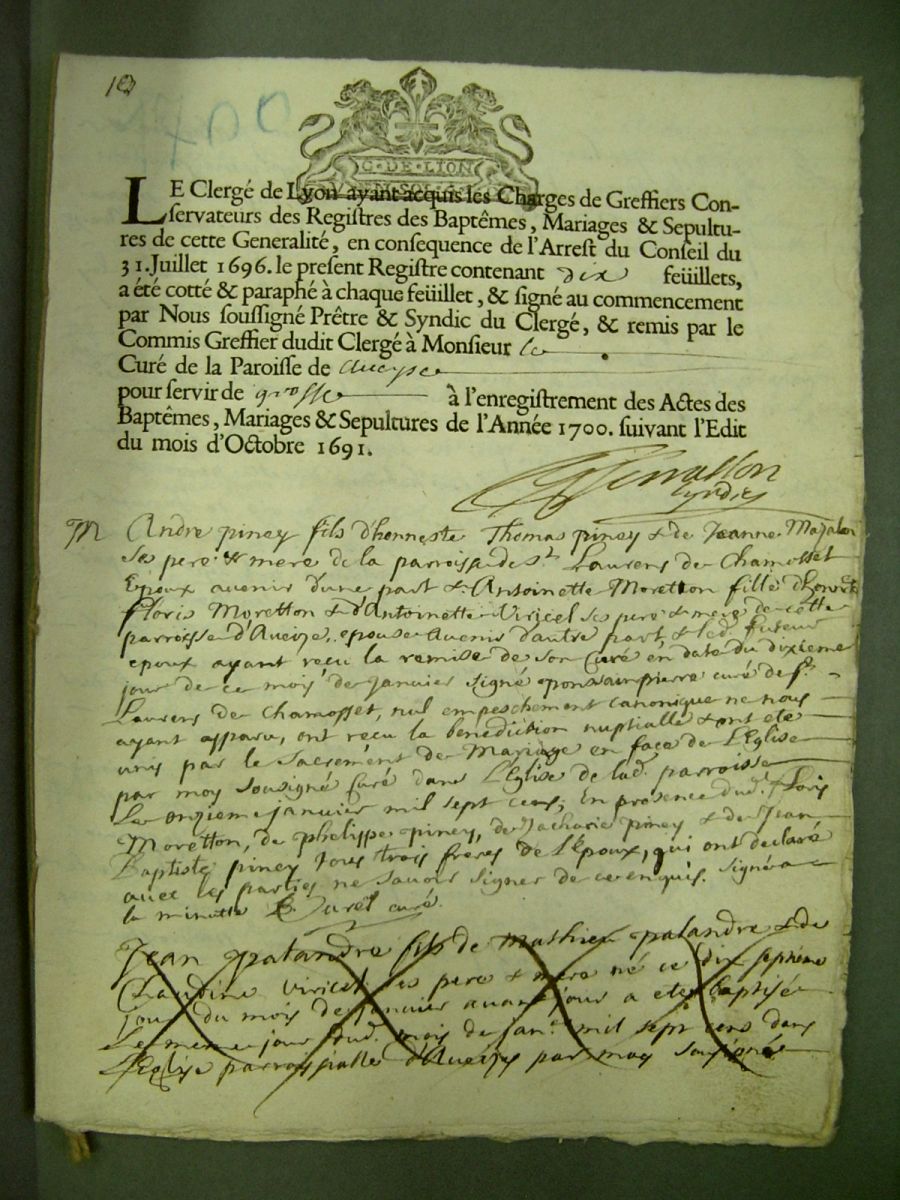 G · DE · LION
LE Clergé de Lyon ayant acquis les Charges de Greffiers Con-
ſervateurs des Regiſtres des Baptêmes, Mariages & Sepultu-
res de cette Generalité, en conſequence de l'Arreſt du Conſeil du
31. Juillet 1696. le preſent Regiſtre contenant dix feüillets,
a été cotté & paraphé à chaque feüillet, & ſigné au commencement
par Nous ſouſſigné Prêtre & Syndic du Clergé, & remis par le
Commis Greffier dudit Clergé à Monſieur le
Curé de la Paroiſſe de Aveyse
pour ſervir de grosse à l'enregiſtrement des Actes des
Baptêmes, Mariages & Sepultures de l'Année 1700. ſuivant l'Edit
du mois d'Octobre 1691.
syndic
M Andre piney fils d'honneste Thomas piney & de Jeanne
ses pere & mere de la parroisse de St. Laurens de Chamosset
Epoux avenir d'une part & Antoinette Moretton fille d'honeste
Floris Moretton & d'Antoinette Viricel ses pere & mere de cette
parroisse d'Aveize, epouse avenir d'autre part, & led. futeur
epoux ayant reçu la remise de son Curé en date du dixieme
jour de ce mois de Janvier signé curé de St.
Laurens de Chamosset, nul empeschement canonique ne nous
ayant apparu, ont reçu la benediction nuptialle & ont eté
unis par le Sacrement de Mariage en face de L'Eglise
par moy sousigné Curé dans L'Eglise de lad. parroisse
Le onzieme janvier mil sept cens, En presence dud. Floris
Moretton, de phelippe piney, de Zacharie piney & de Jean
Baptiste piney tous trois freres de L'Epoux, qui ont declaré
avec les parties ne savoir signer de ce enquis. Signé a
la minutte curé.
Jean palandre fils de Mathieu palandre & de
Claudine Viricel ses pere & mere né ce dix septième
jour du mois de janvier avant jour a eté baptisé
Le meme jour dud. mois de janr. mil sept cens dans
L'Eglise parroissialle d'Aveyse par moy sousigné